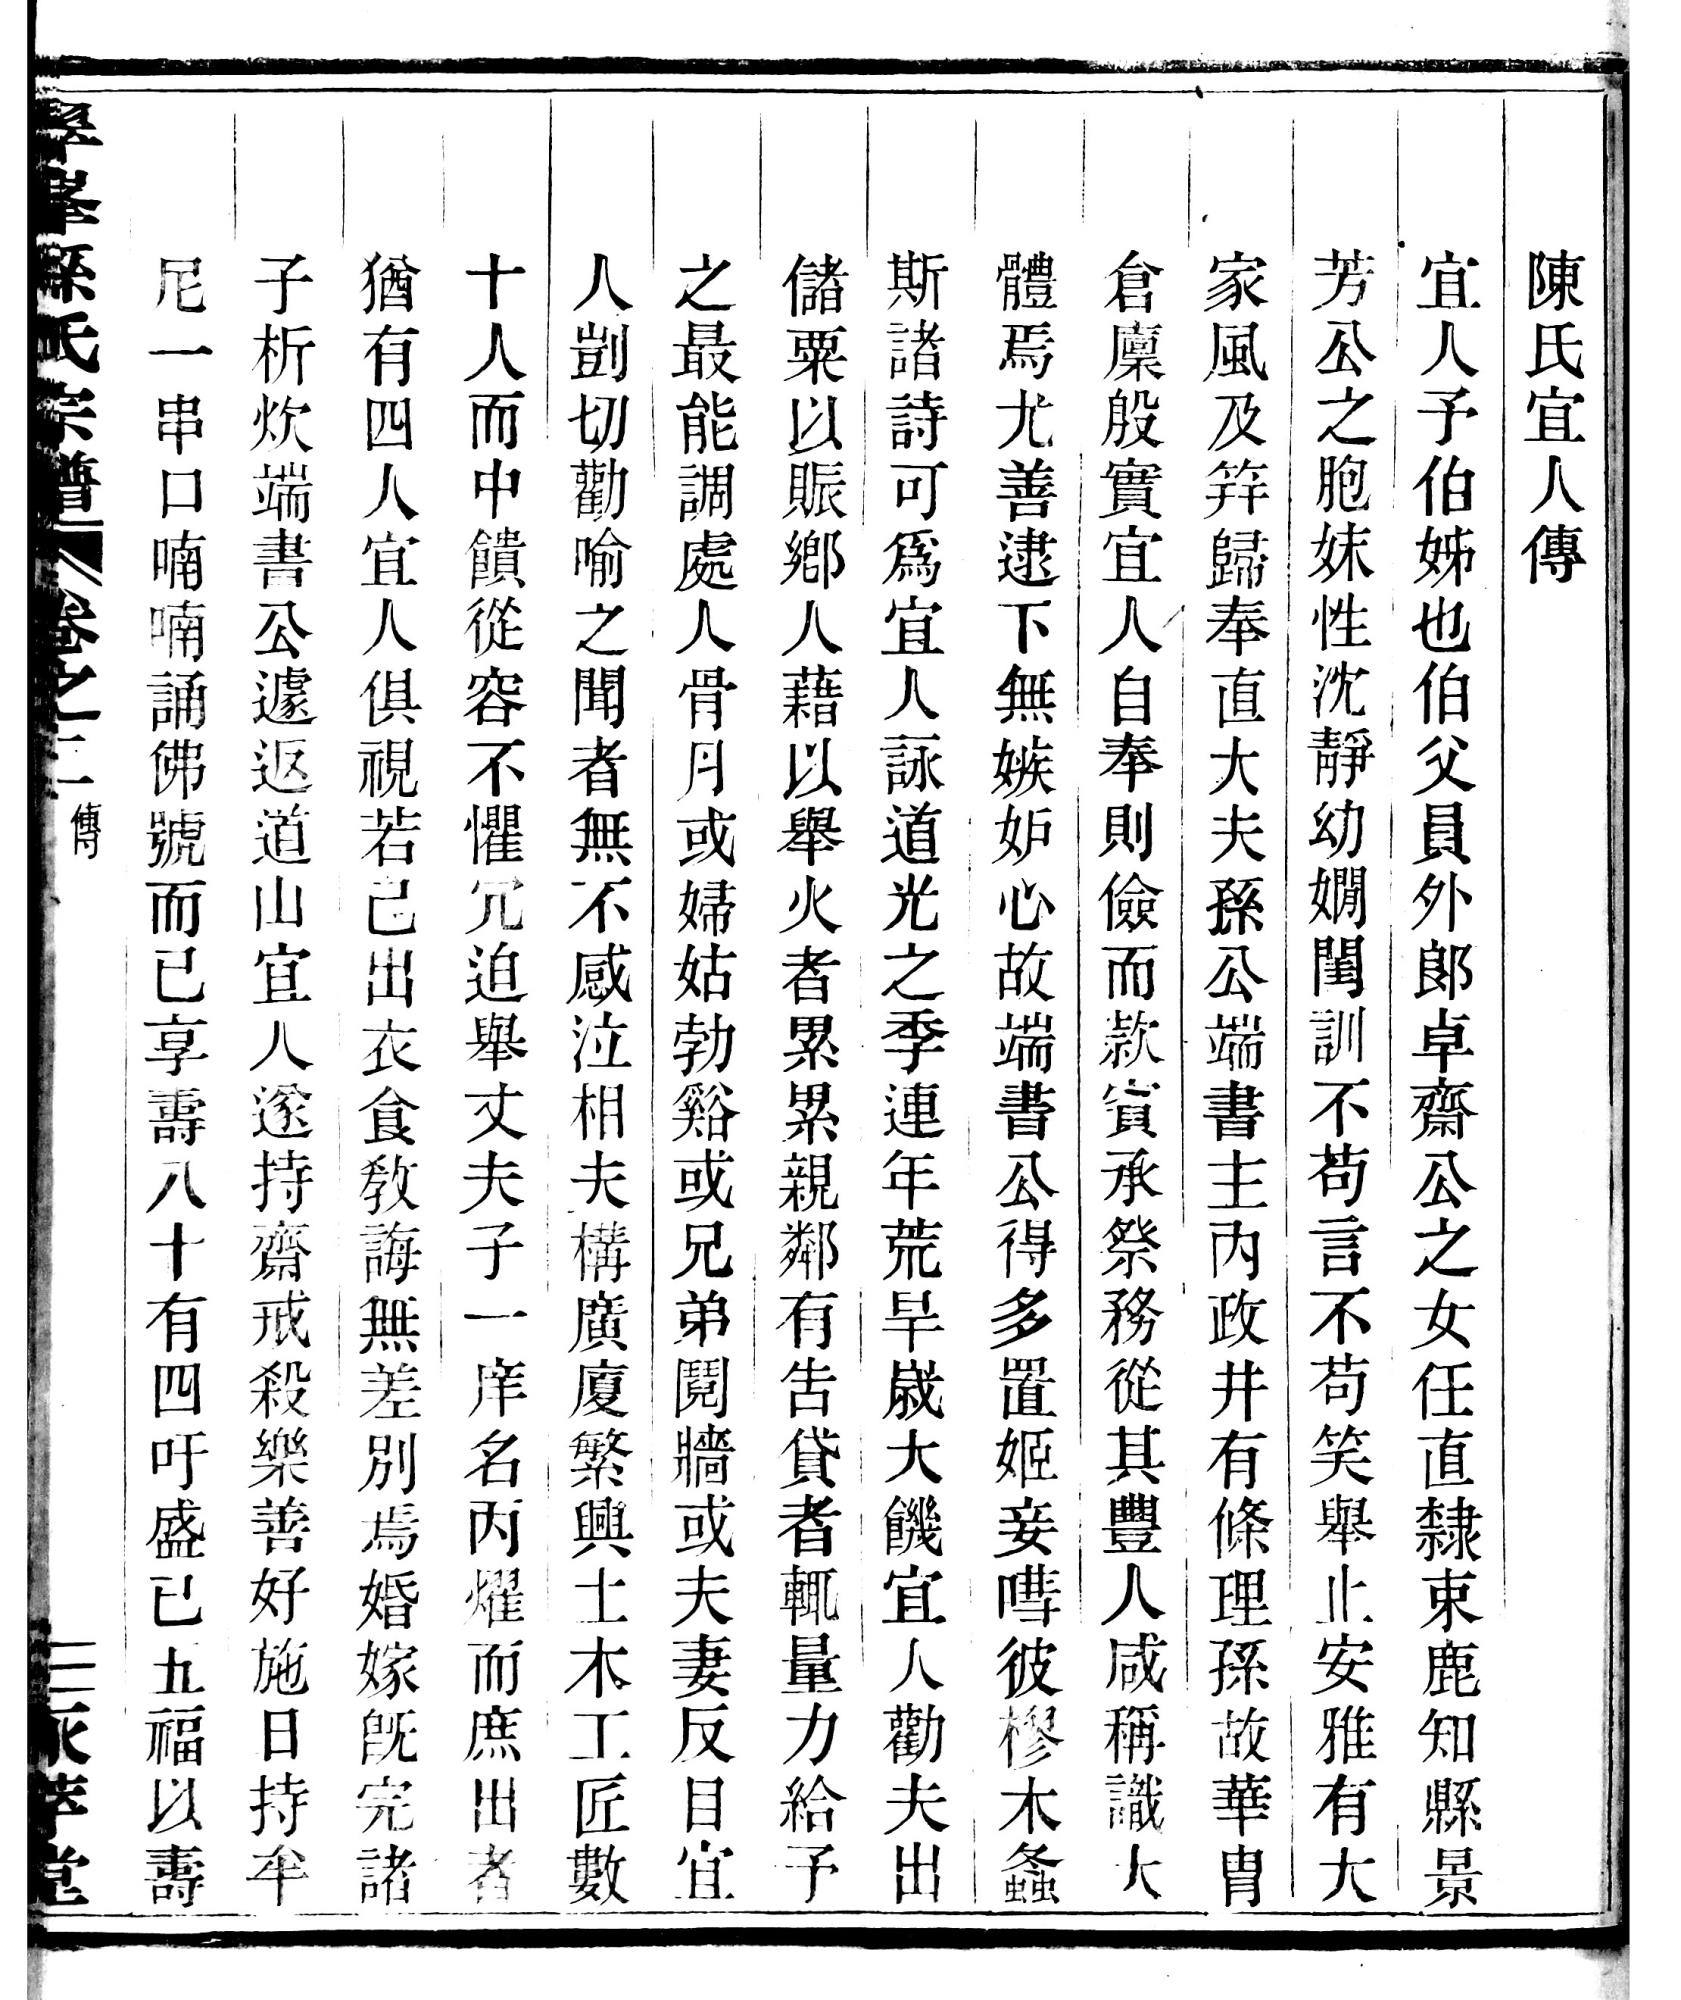 陳氏宜人傳
宜人予伯姊也伯父員外郎卓齋公之女任直隸束鹿知縣景
芳公之胞妹性沈靜幼嫺閨訓不苟言不苟笑舉止安雅有大
家風及笄歸奉直大夫孫公端書主內政井有條理孫故華胄
倉廩殷實宜人自奉則儉而款賓承祭務從其豐人咸稱識大
體焉尤善逮下無嫉妒心故端書公得多置姬妾嘒彼樛木螽
斯諸詩可為宜人詠道光之季連年荒旱歲大饑宜人勸夫出
儲粟以賑鄉人藉以舉火者累累親鄰有告貸者輒量力給予
之最能調處人骨月或婦姑勃谿或兄弟鬩牆或夫妻反目宜
人剴切勸喻之聞者無不感泣相夫構廣廈繁興土木工匠數
十人而中饋從容不懼冗迫舉丈夫子一庠名丙燿而庶出者
猶有四人宜人俱視若己出衣食教誨無差別焉婚嫁既完諸
子析炊端書公遽返道山宜人遂持齋戒殺樂善好施日持牟
尼一串口喃喃誦佛號而已享壽八十有四吁盛已五福以壽
孫氏宗譜 卷之二 傳
堂